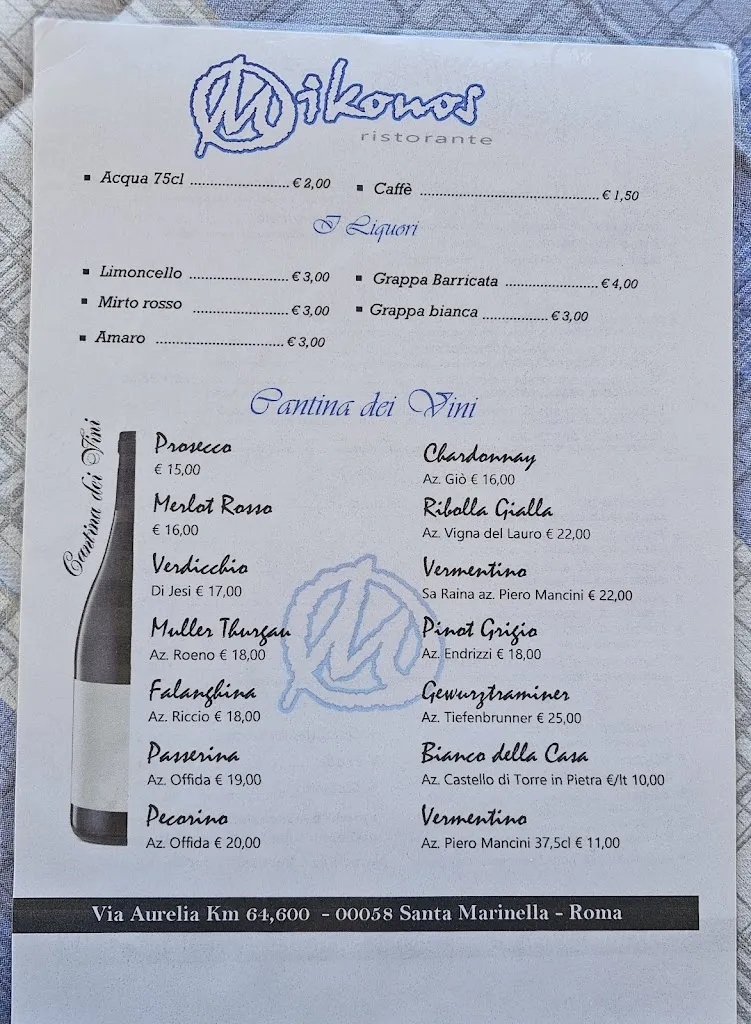 Mikonos
ristorante
▪ Acqua 75cl ........................ € 2,00
▪ Caffè ............................................ € 1,50
I Liquori
▪ Limoncello ........................ € 3,00
▪ Grappa Barricata ...................... € 4,00
▪ Mirto rosso ........................ € 3,00
▪ Grappa bianca ................ € 3,00
▪ Amaro ................................ € 3,00
Cantina dei Vini
Cantina dei Vini
Prosecco
€ 15,00
Merlot Rosso
€ 16,00
Verdicchio
Di Jesi € 17,00
Muller Thurgau
Az. Roeno € 18,00
Falanghina
Az. Riccio € 18,00
Passerina
Az. Offida € 19,00
Pecorino
Az. Offida € 20,00
Chardonnay
Az. Giò € 16,00
Ribolla Gialla
Az. Vigna del Lauro € 22,00
Vermentino
Sa Raina az. Piero Mancini € 22,00
Pinot Grigio
Az. Endrizzi € 18,00
Gewurztraminer
Az. Tiefenbrunner € 25,00
Bianco della Casa
Az. Castello di Torre in Pietra €/lt 10,00
Vermentino
Az. Piero Mancini 37,5cl € 11,00
Via Aurelia Km 64,600 - 00058 Santa Marinella - Roma